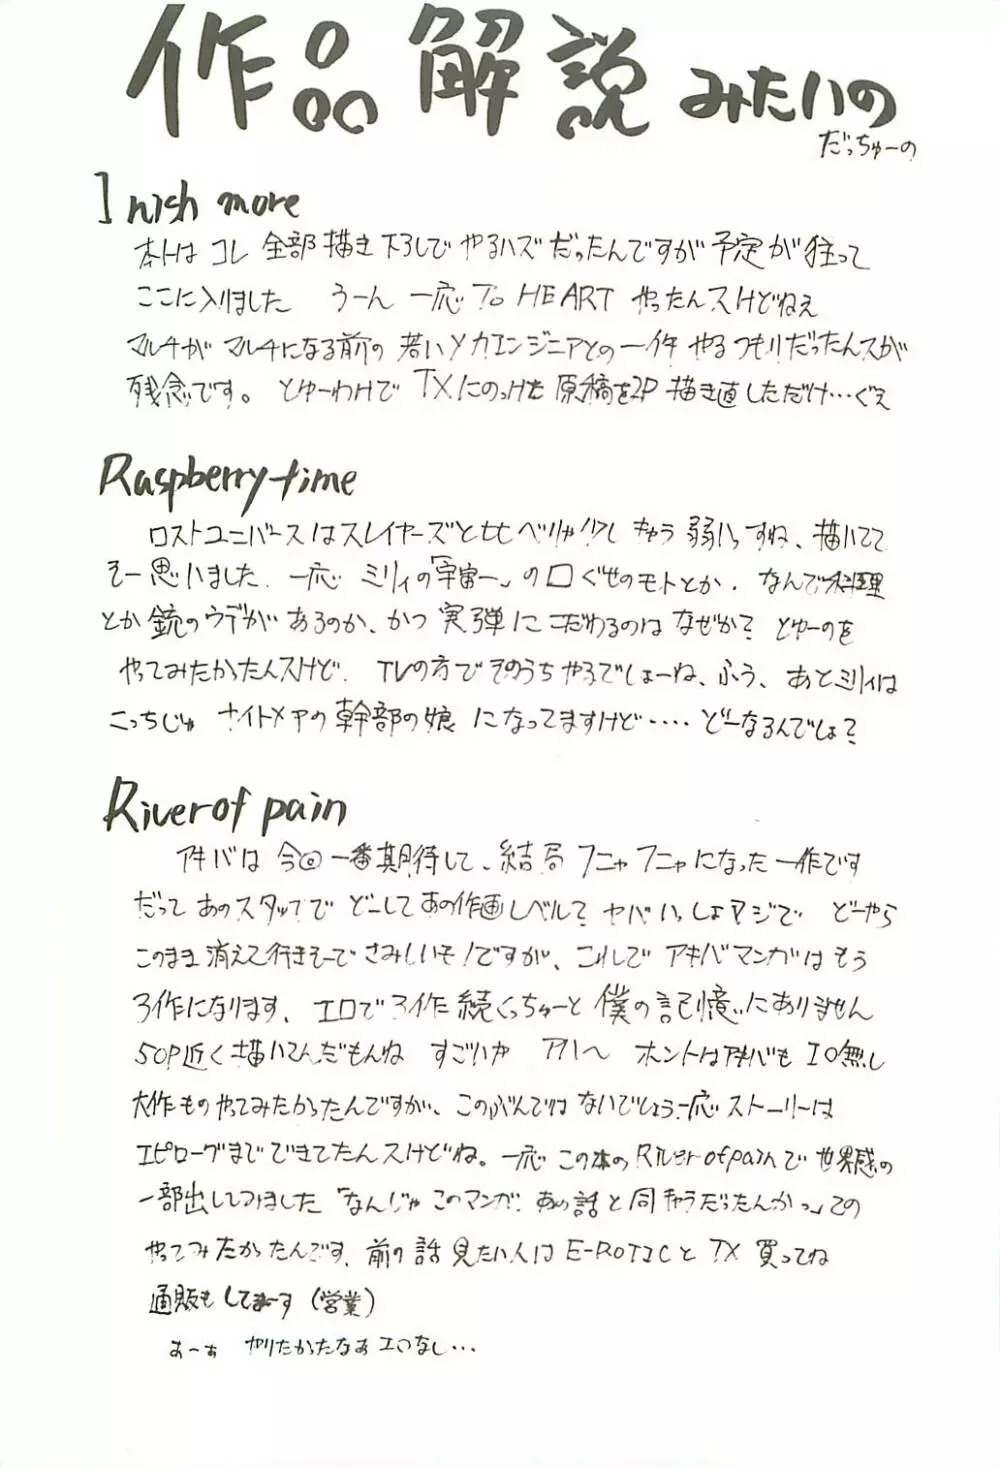 作品解説 みたいの
だっちゅーの
I wish more
本トは コレ 全部描き下ろしで やるハズだったんですが 予定が狂って
ここに入りました うーん 一応 To HEART やったんスけどねえ
マルチが マルチになる前の 若いメカエンジニアとの一件 やるつもりだったんスが
残念です。 とゆーわけで TXにのっけた 原稿を2P 描き直しただけ…ぐえ
Raspberry time
ロストユニバースはスレイヤーズと比べりゃ 少し キャラ 弱いっすね、描いてて
そー思いました. 一応 ミリィの「宇宙一」の口ぐせのモトとか. なんで料理
とか銃のウデが あるのか、かつ 実弾に こだわるのは なぜか? とゆーのを
やってみたかったんスけど. TVの方で そのうちやるでしょーね、ふう、あとミリィは
こっちじゃ ナイトメアの幹部の娘 になってますけど・・・・ どーなるんでしょ?
River of pain
アキバは 今回一番期待して、結局 フニャフニャになった 一作です
だって あのスタッフで どーして あの作画レベル? ヤバいっしょ マジで どーやら
このまま 消えて行きそーで さみしいそ!ですが、これで アキバマンガは もう
3作になります、エロで3作 続くっちゅーと 僕の記憶にありません
50P近く描いてんだもんね すごいか アハ〜 ホントはアキバも エロ無し
大作もの やってみたかったんですが、このぶんでは ないでしょう 一応 ストーリーは
エピローグまで できてたんスけどね。一応 この本の River of painで 世界感の
一部出しつつました 「なんじゃ このマンガ. あの話と同キャラだったんかっ」ての
やってみたかったんです. 前の話 見たい人は E-ROTIC と TX 買ってね
通販も してまーす (営業)
あーあ やりたかったなあ エロなし…